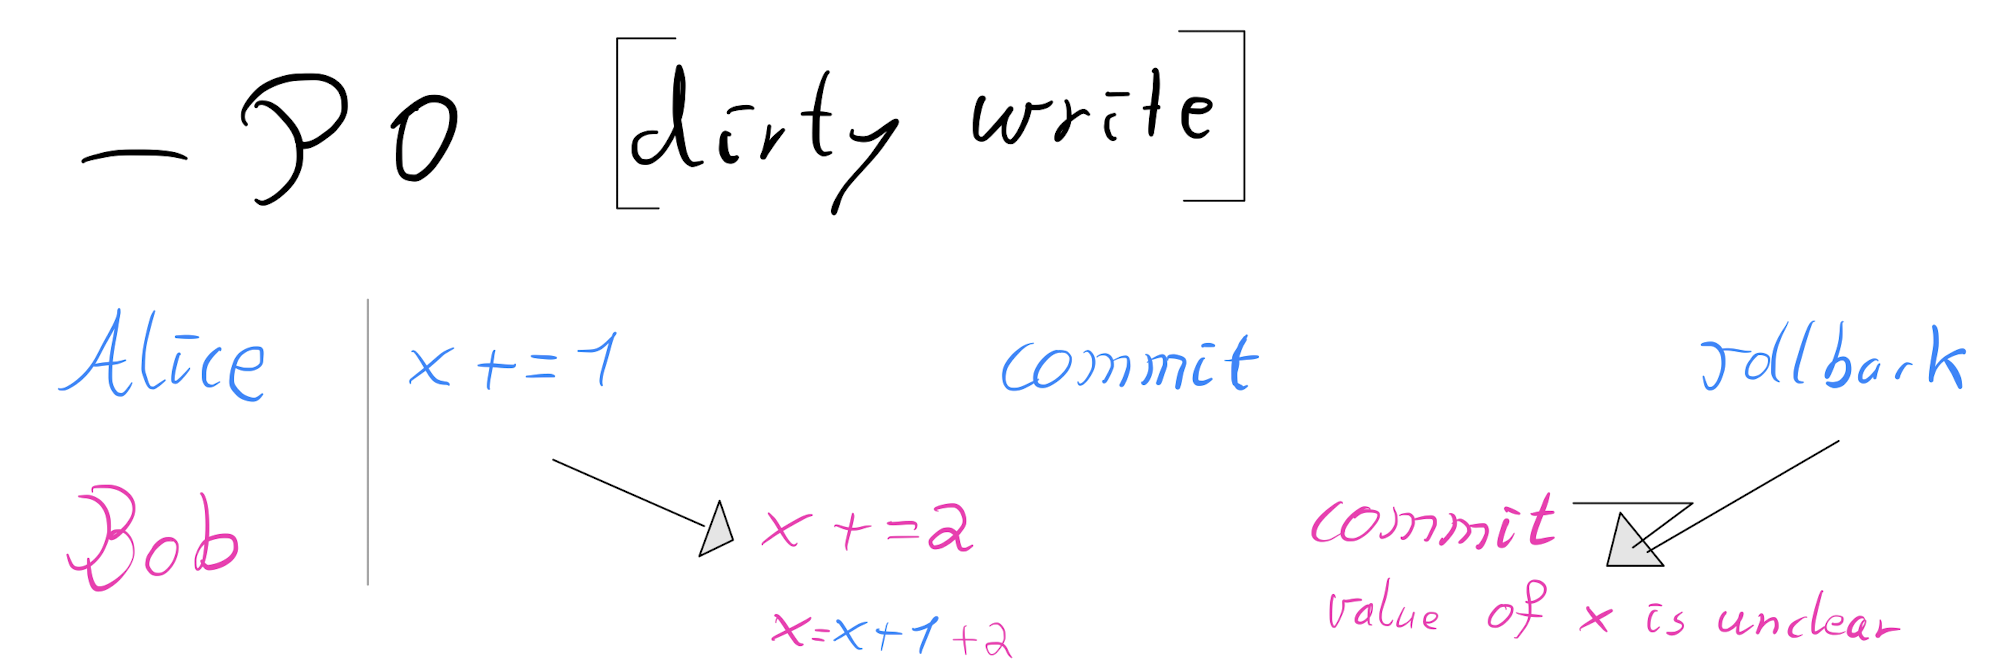 – P0 [dirty write]
Alice x += 1 commit rollback
Bob x += 2 commit
x = x + 1 + 2 value of x is unclear